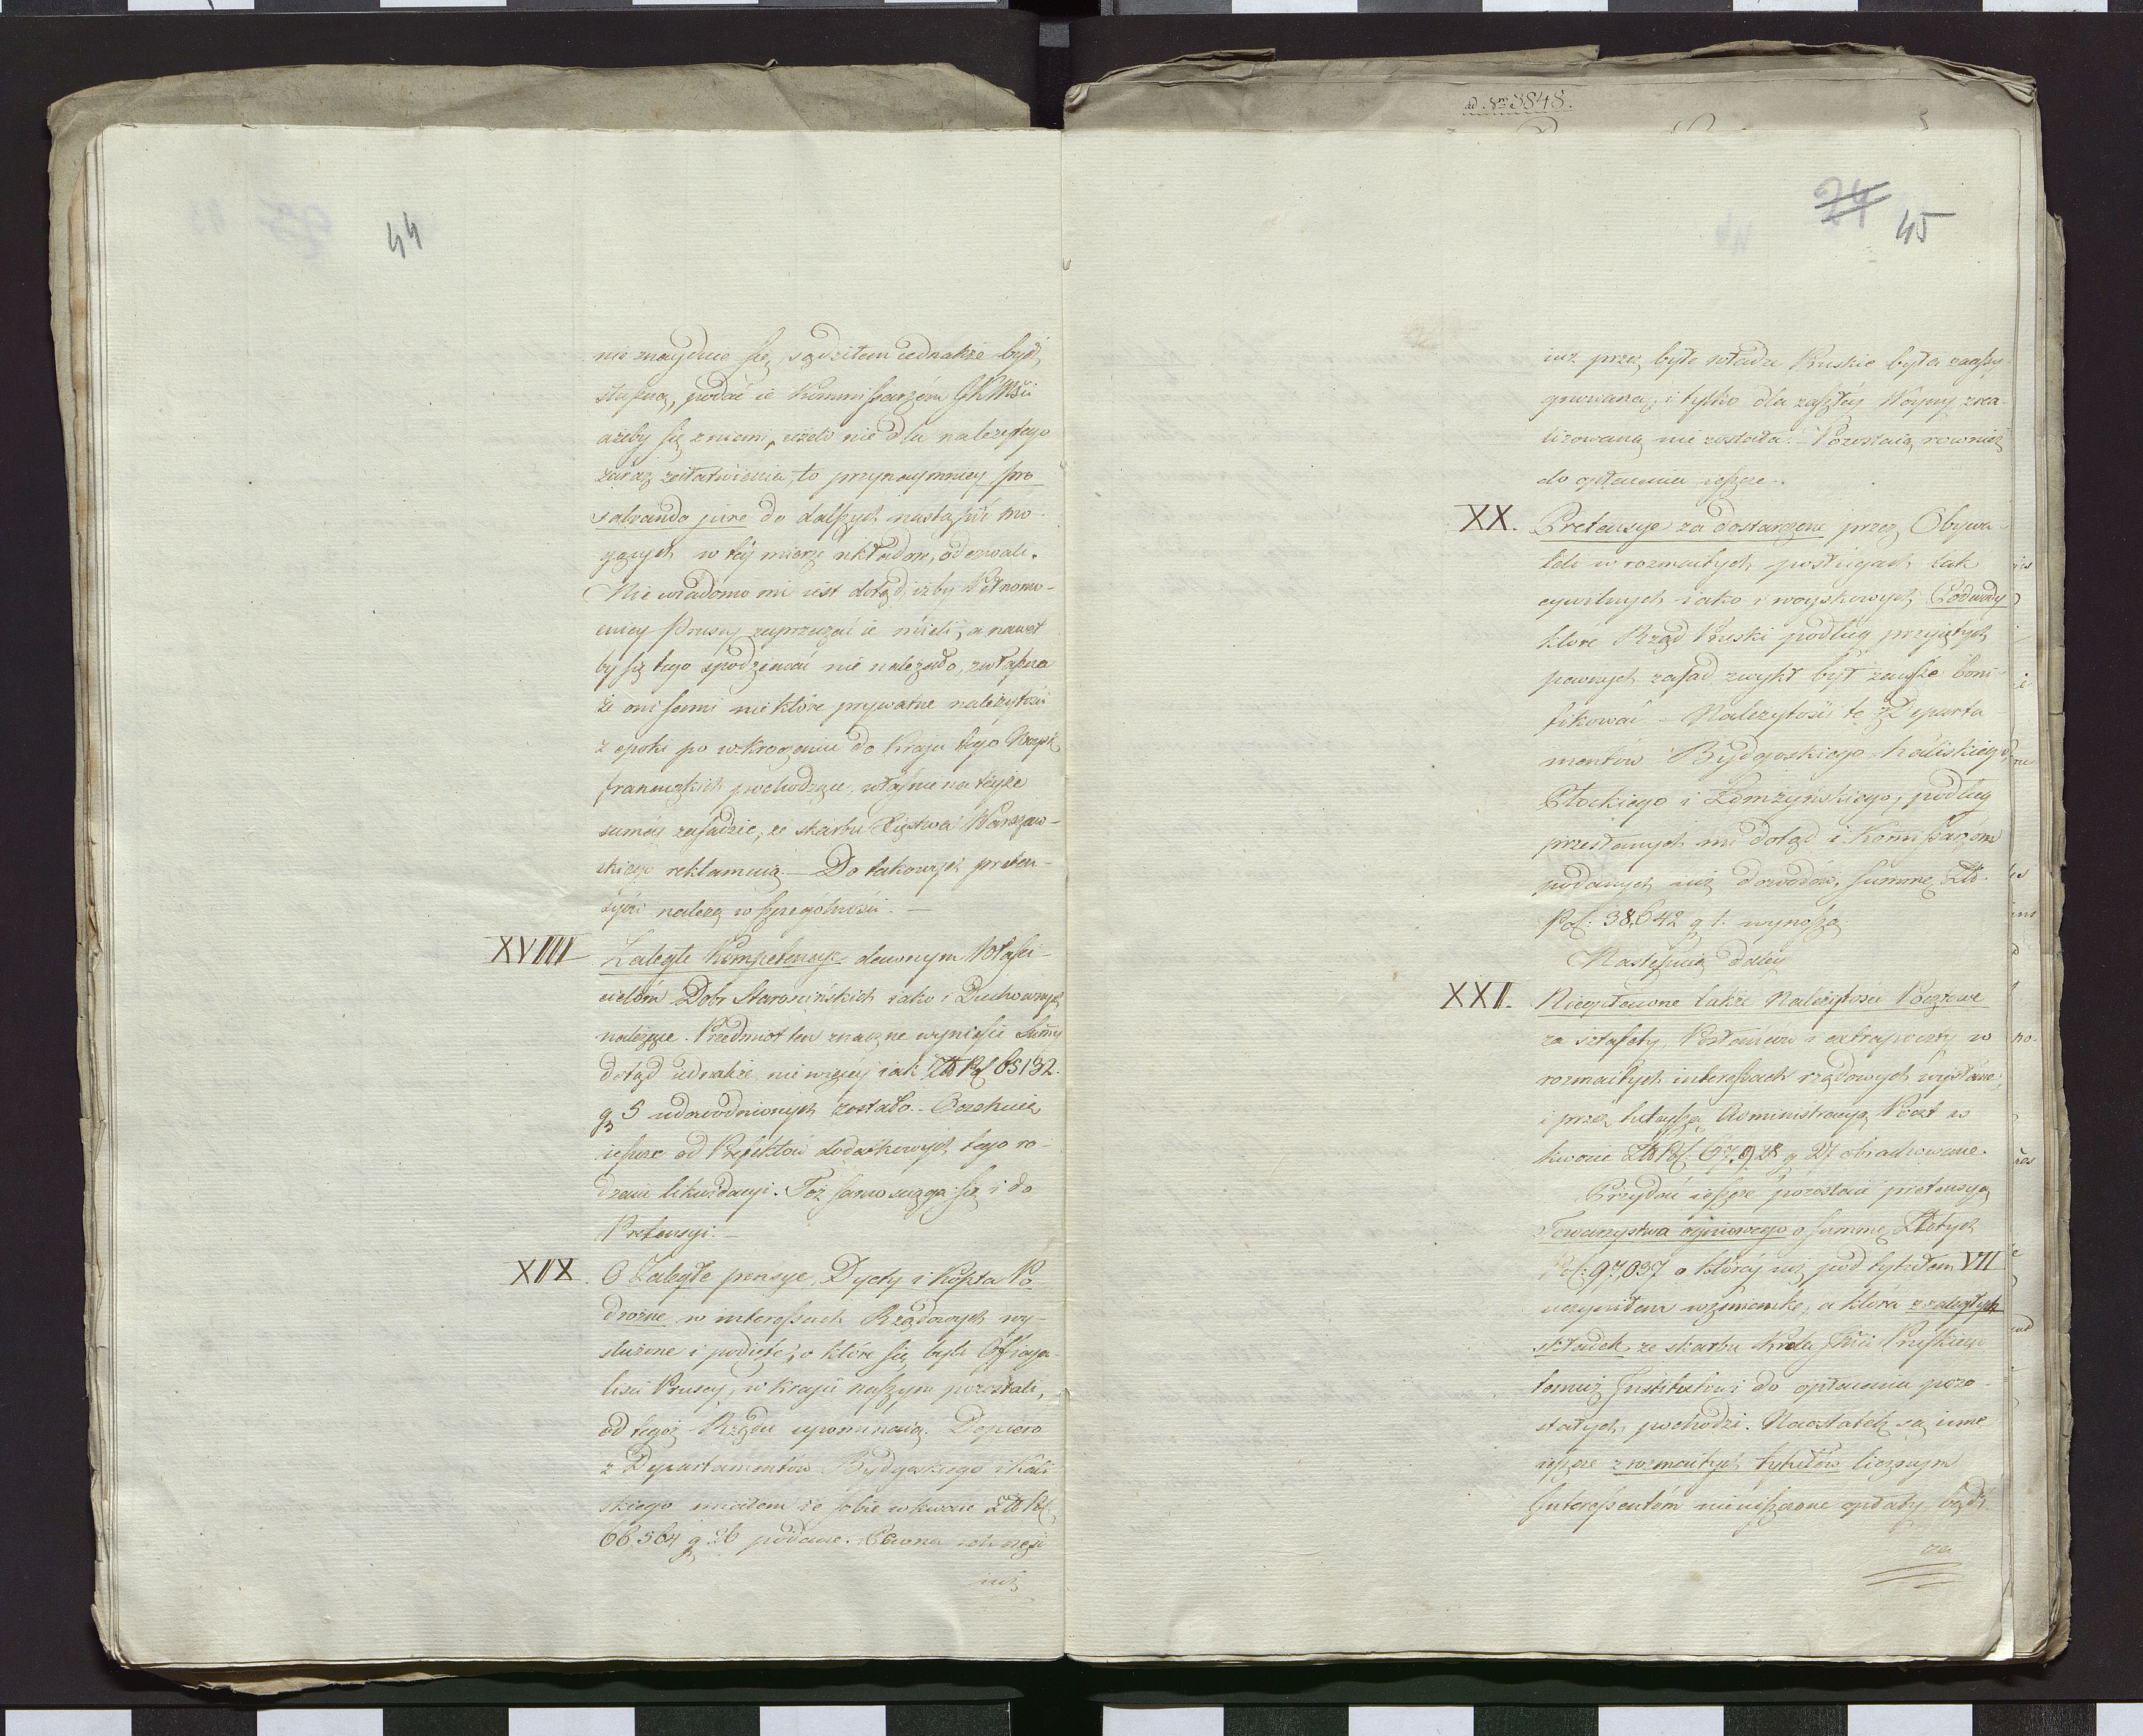 44
nie znayduie się, sądziłem iednakże być
słuszną, podać ie Kommissarzóm JKMści
ażeby się z niemi, ieżeli nie dla należytego
zaraz załatwienia, to przynaymniey pro
salvando jure do dalszych nastąpić mo-
gących w téy mierze układów, odezwali.
Nie wiadomo mi iest dotąd, iżby Pełnomo-
cnicy Pruscy zaprzeczać ie mieli, a nawet
by się tego spodziewać nie należało, zwłaszcza
że oni sami niektóre prywatne należytości
z epoki po wkroczeniu do Kraju tego Woysk
francuzkich pochodzące, właśnie na teyże
saméy zasadzie, ze skarbu Xięstwa Warszaw-
skiego reklamuią. — Do takowych preten-
syów należą w szczególności. —
XVIIII Zaległe Kompetencye dawnym Właści-
cielóm Dobr Starościńskich iako i Duchownych
należące. Przedmiot ten znaczne wyniesie Summy
dotąd iednakże nie więcéy iak Złt Pol 65132.
gr 5 udowodnionych zostało. - Oczekuię
ieszcze od Prefektów dodatkowych tego ro-
dzaiu likwidacyi. Toż samo ściąga się i do
Pretensyi. —
XIX. O Zaległe pensye, Dyety i Koszta Po
drożne w interessach Rządowych wy-
służone i podięte, o które się byli Officya-
liści Pruscy, w kraju naszym pozostali,
od tegoż Rządu upominaią. Dopiero
z Departamentów Bydgoskiego i Kali
skiego miałem ie sobie w kwocie Złt Pol
66,564 gr 26 podane. Pewna ich część
iuż
ad Nrm 3848.
5
24 45
iuż przez byłe władze Pruskie była zaassy-
gnowaną, i tylko dla zaszłéy Woyny zrea-
lizowaną nie została. — Pozostaią również
do opłacenia ieszcze.
XX. Pretensye za dostarczone przez Obywa-
teli w rozmaitych posługach tak
cywilnych iako i woyskowych Podwody
które Rząd Pruski podług przyiętych
pewnych zasad zwykł był zawsze boni-
fikować - Należytości te z Departa
mentów Bydgoskiego Kaliskiego,
Płockiego i Łomżyńskiego, podług
przesłanych mi dotąd i Kommissarzom
podanych iuż dowodów, summę Złt.
Pol: 38,642 g 1. wynoszą
Następuią daléy
XXI. Nieopłacone także Należytości Pocztowe
za sztafety, Posłańców i extrapoczty w
rozmaitych interessach rządowych wysłane,
i przez tuteyszą Administracyą Poczt w
kwocie Złt Pol: 67,928 g 27 obrachowane.
Przydać ieszcze pozostaie pretensyą
Towarzystwa ogniowego o summę Złotych
Pol: 97,037 o któréy iuż pod tytułem VII
uczyniłem wzmiankę, a która z zaległych
składek ze skarbu Króla JMci Pruskiego
temuż Institutowi do opłacenia pozo-
stałych, pochodzi. Naostatek są inne
ieszcze z rozmaitych tytułów licznym
Interessentóm nieuiszczone opłaty, bądź
za